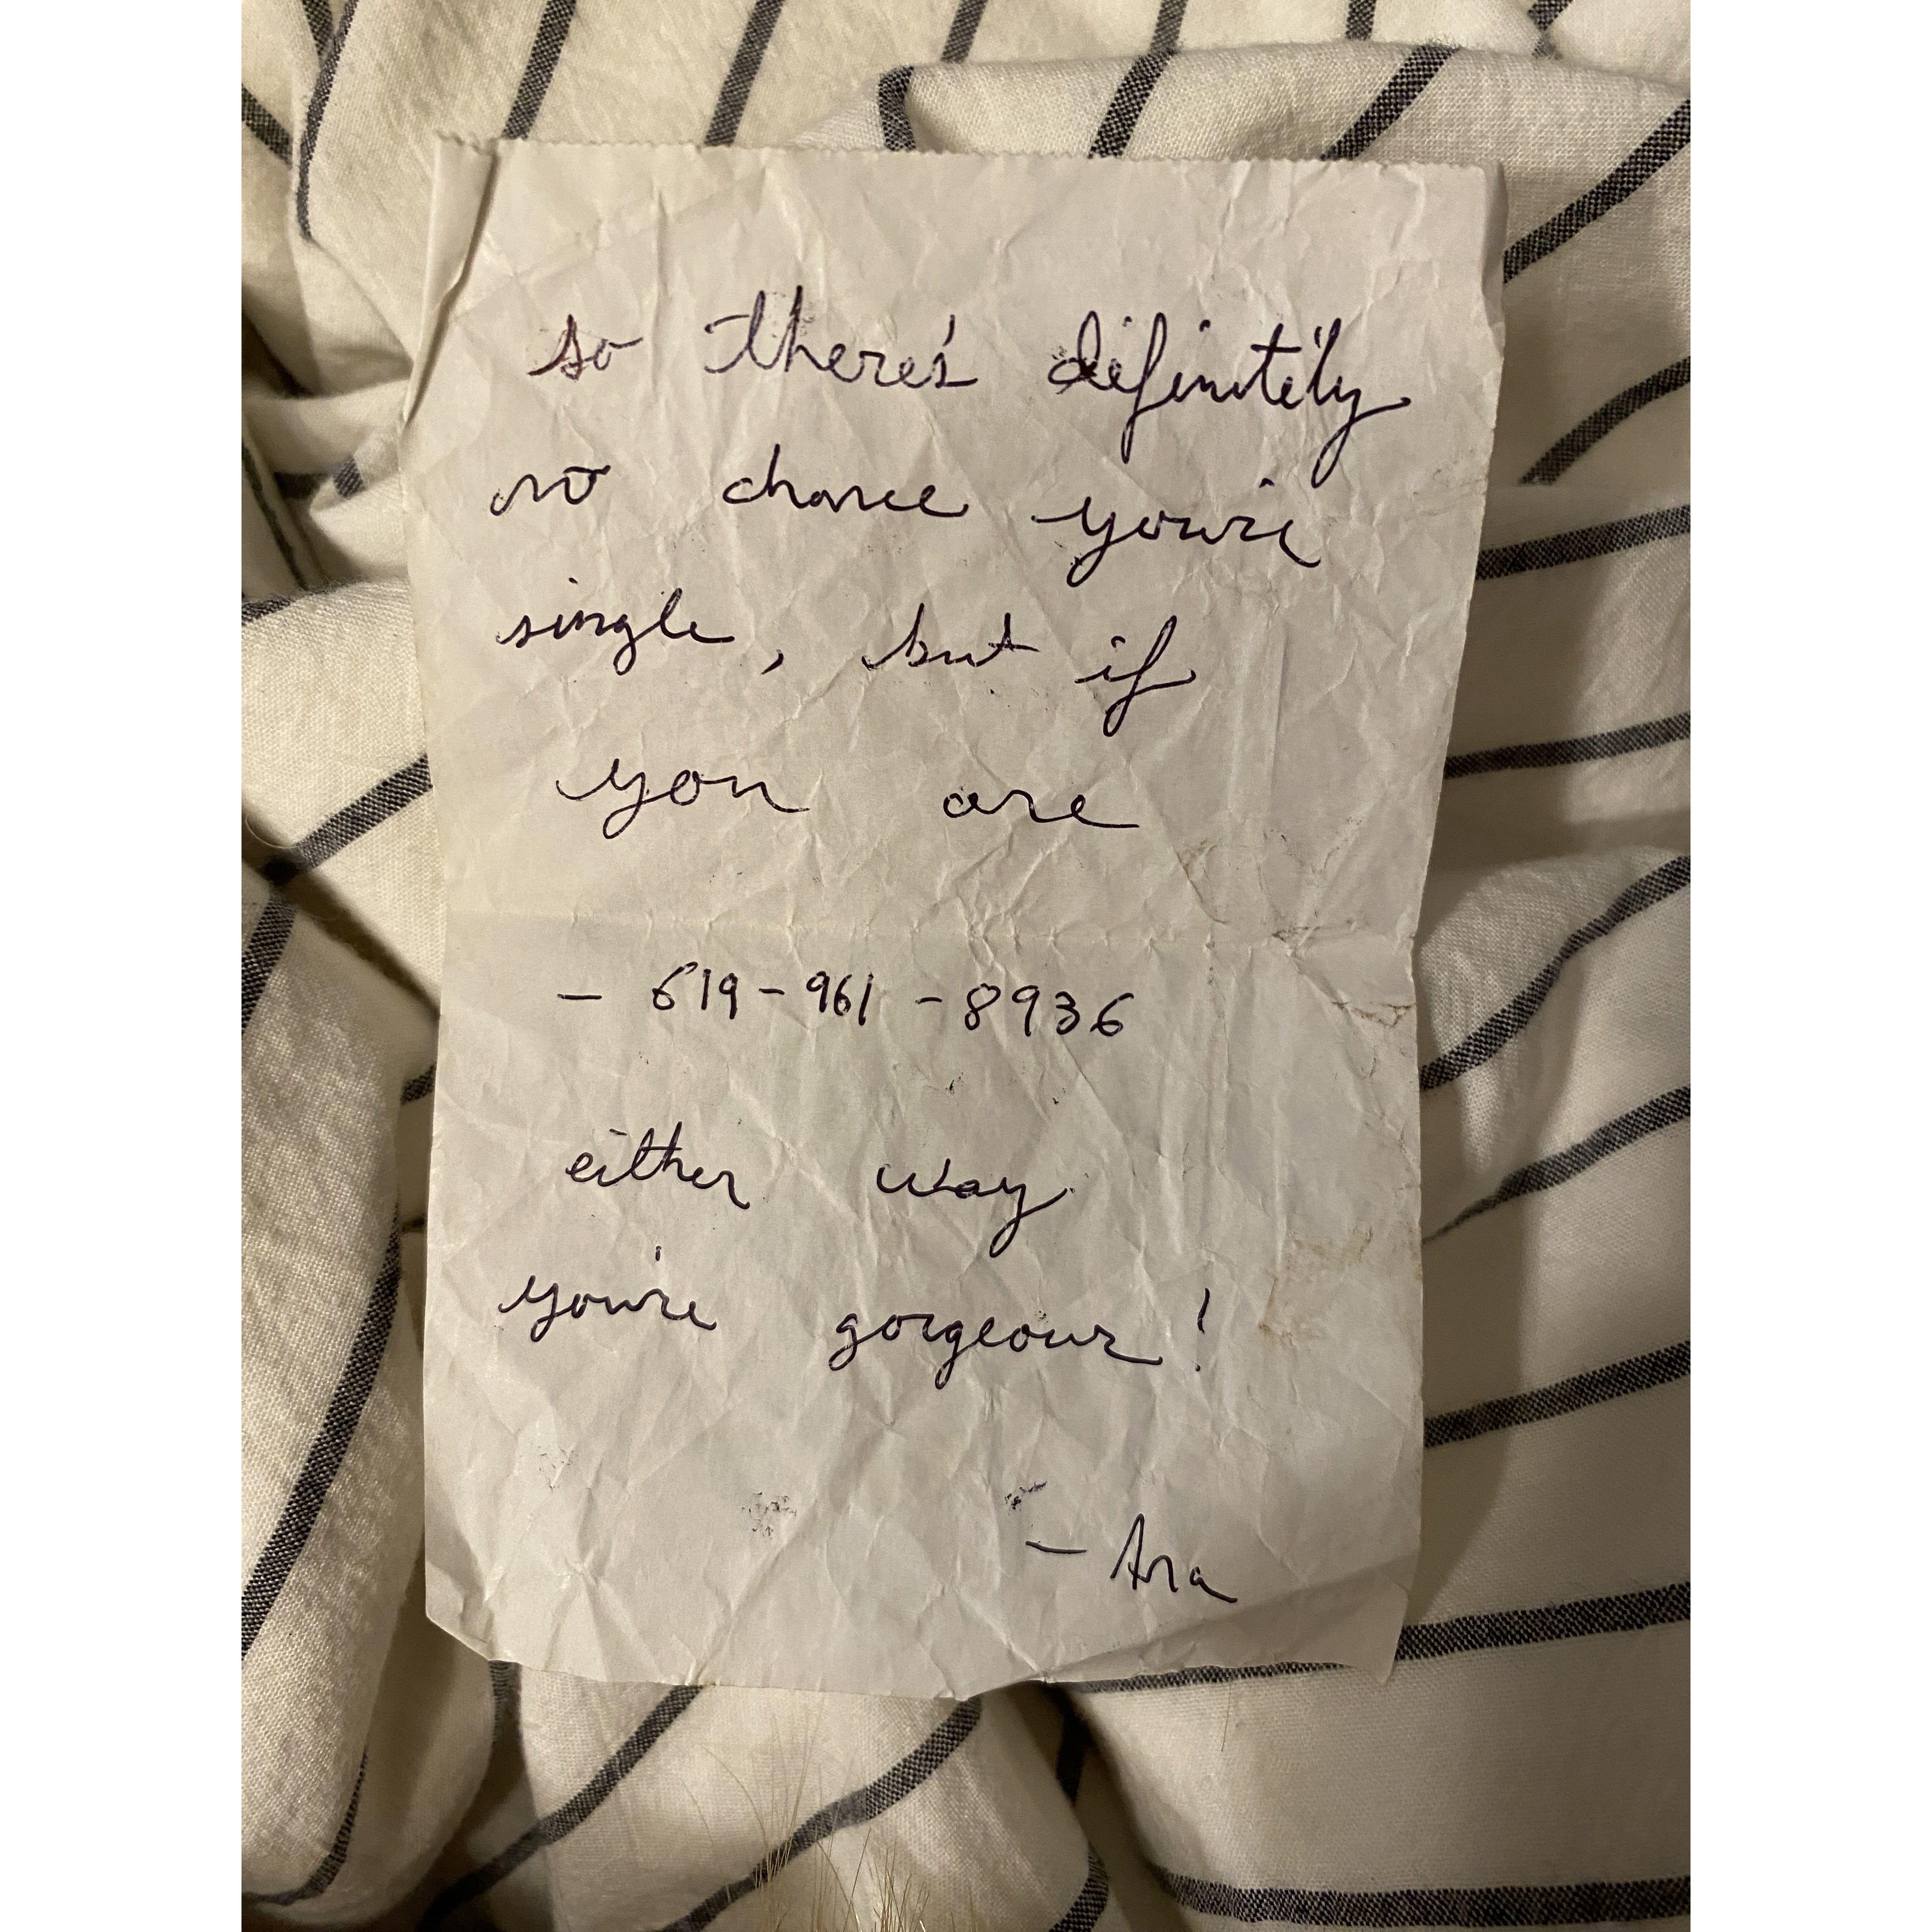 so there's definitely
no chance you're
single, but if
you are
- 619-961-8936
either way
you're gorgeous!
- Ara